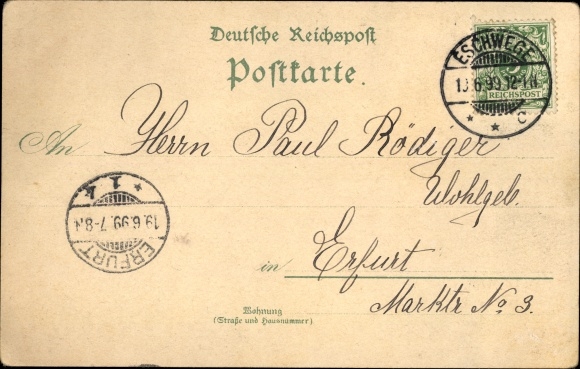 Deutsche Reichspost
Postkarte.
ESCHWEGE
6.99.12-1N
* * c
REICHSPOST
An Herrn Paul Rödiger
Wohlgeb.
* 1 k.
19.6.99.7-8
ERFURT
in Erfurt
Marktr No 3.
Wohnung
(Straße und Hausnummer)